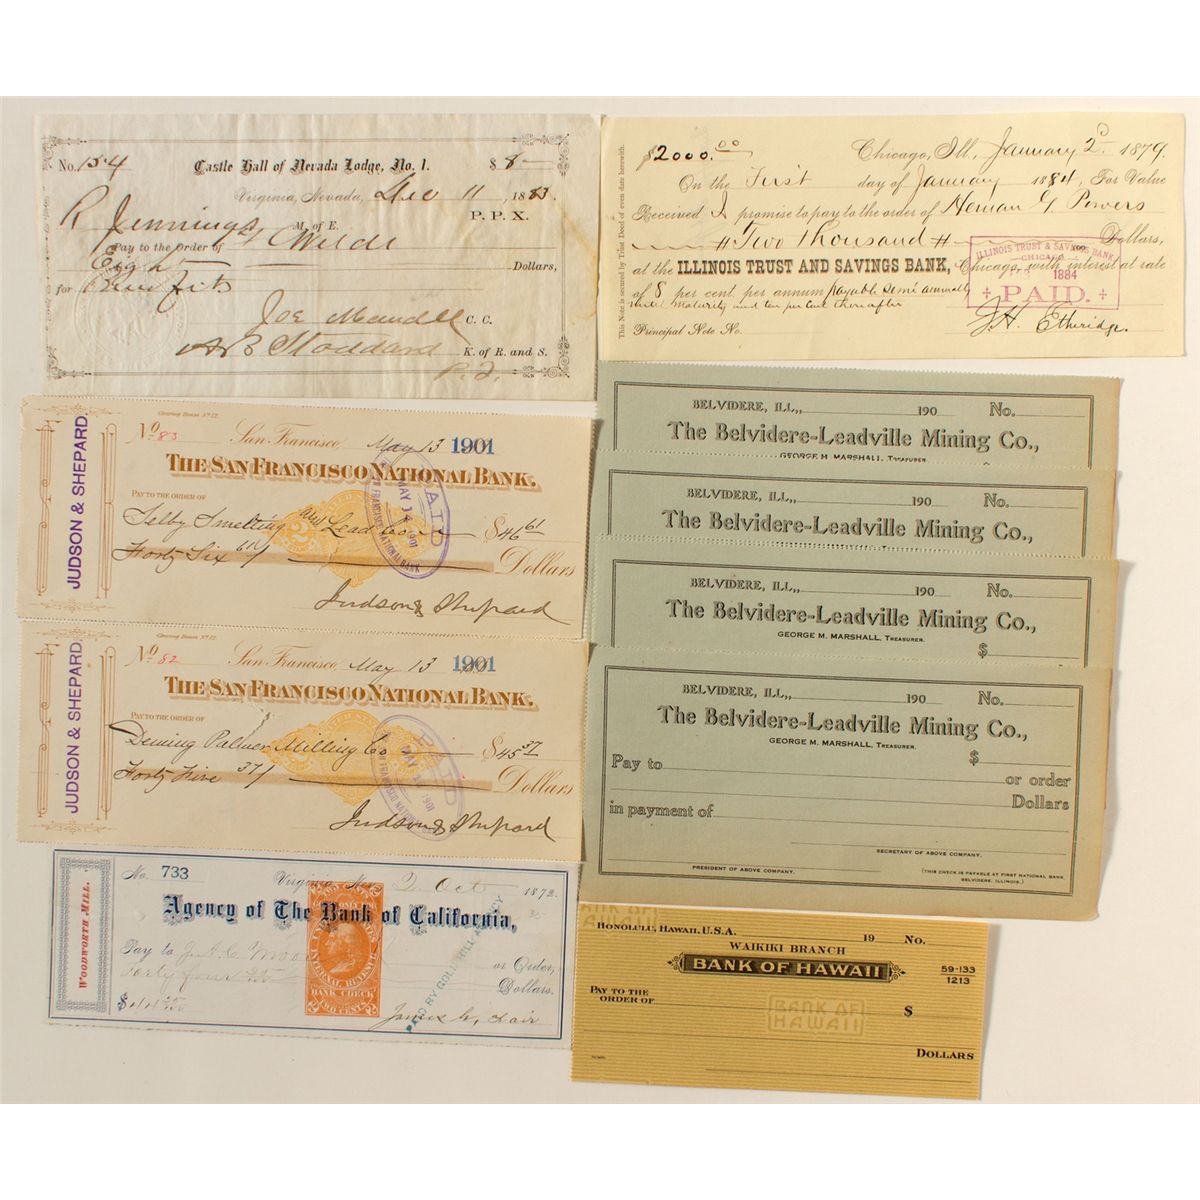 No. 154 Castle Hall of Nevada Lodge, No. 1. $ 8
Virginia, Nevada, Dec 11 1883
P. P. X.
R Jennings M. of E.
Pay to the Order of Wilds
Eight Dollars,
for Benefits
C. C.
A B Stoddard K. of R. and S.
This Note is secured by Trust Deed of even date herewith.
$2000.00 Chicago, Ill., January 2d 1879.
On the First day of January 1884, For Value
Received I promise to pay to the order of Heman G Powers
# Two thousand # Dollars,
at the ILLINOIS TRUST AND SAVINGS BANK, Chicago, with interest at rate
of 8 per cent. per annum payable semi annually
until maturity and ten per cent thereafter
Principal Note No.
J. H. Etheridge.
ILLINOIS TRUST & SAVINGS BANK
CHICAGO
1884
PAID.
JUDSON & SHEPARD.
Clearing House No. 22.
No. 83 San Francisco, May 13 1901
THE SAN FRANCISCO NATIONAL BANK.
PAY TO THE ORDER OF
Selby Smelting and Lead Co $46 61
Forty Six 61/ Dollars
Judson & Shepard
PAID
MAY 1901
SAN FRANCISCO NATIONAL BANK
JUDSON & SHEPARD.
Clearing House No. 22.
No. 82 San Francisco, May 13 1901
THE SAN FRANCISCO NATIONAL BANK.
PAY TO THE ORDER OF
Deming Palmer Milling Co $45 37
Forty Five 37/ Dollars
Judson & Shepard
PAID
MAY 1901
WOODWORTH MILL.
No. 733 Virginia, N. 2 Oct 1872
Agency of The Bank of California,
Pay to or Order,
Forty four Dollars.
$44
PAID BY GOLD HILL AGENCY
UNITED STATES
INTERNAL REVENUE
BANK CHECK
TWO CENTS
BELVIDERE, ILL., 190 No.
The Belvidere-Leadville Mining Co.,
GEORGE M. MARSHALL, TREASURER.
$
BELVIDERE, ILL., 190 No.
The Belvidere-Leadville Mining Co.,
BELVIDERE, ILL., 190 No.
The Belvidere-Leadville Mining Co.,
GEORGE M. MARSHALL, TREASURER.
$
BELVIDERE, ILL., 190 No.
The Belvidere-Leadville Mining Co.,
GEORGE M. MARSHALL, TREASURER.
Pay to $
or order
Dollars
in payment of
SECRETARY OF ABOVE COMPANY.
PRESIDENT OF ABOVE COMPANY.
(THIS CHECK IS PAYABLE AT FIRST NATIONAL BANK,
BELVIDERE, ILLINOIS.)
BANK OF
HAWAII
HONOLULU, HAWAII, U.S.A. 19 No.
WAIKIKI BRANCH
BANK OF HAWAII
59-133
1213
PAY TO THE
ORDER OF $
BANK OF
HAWAII
DOLLARS